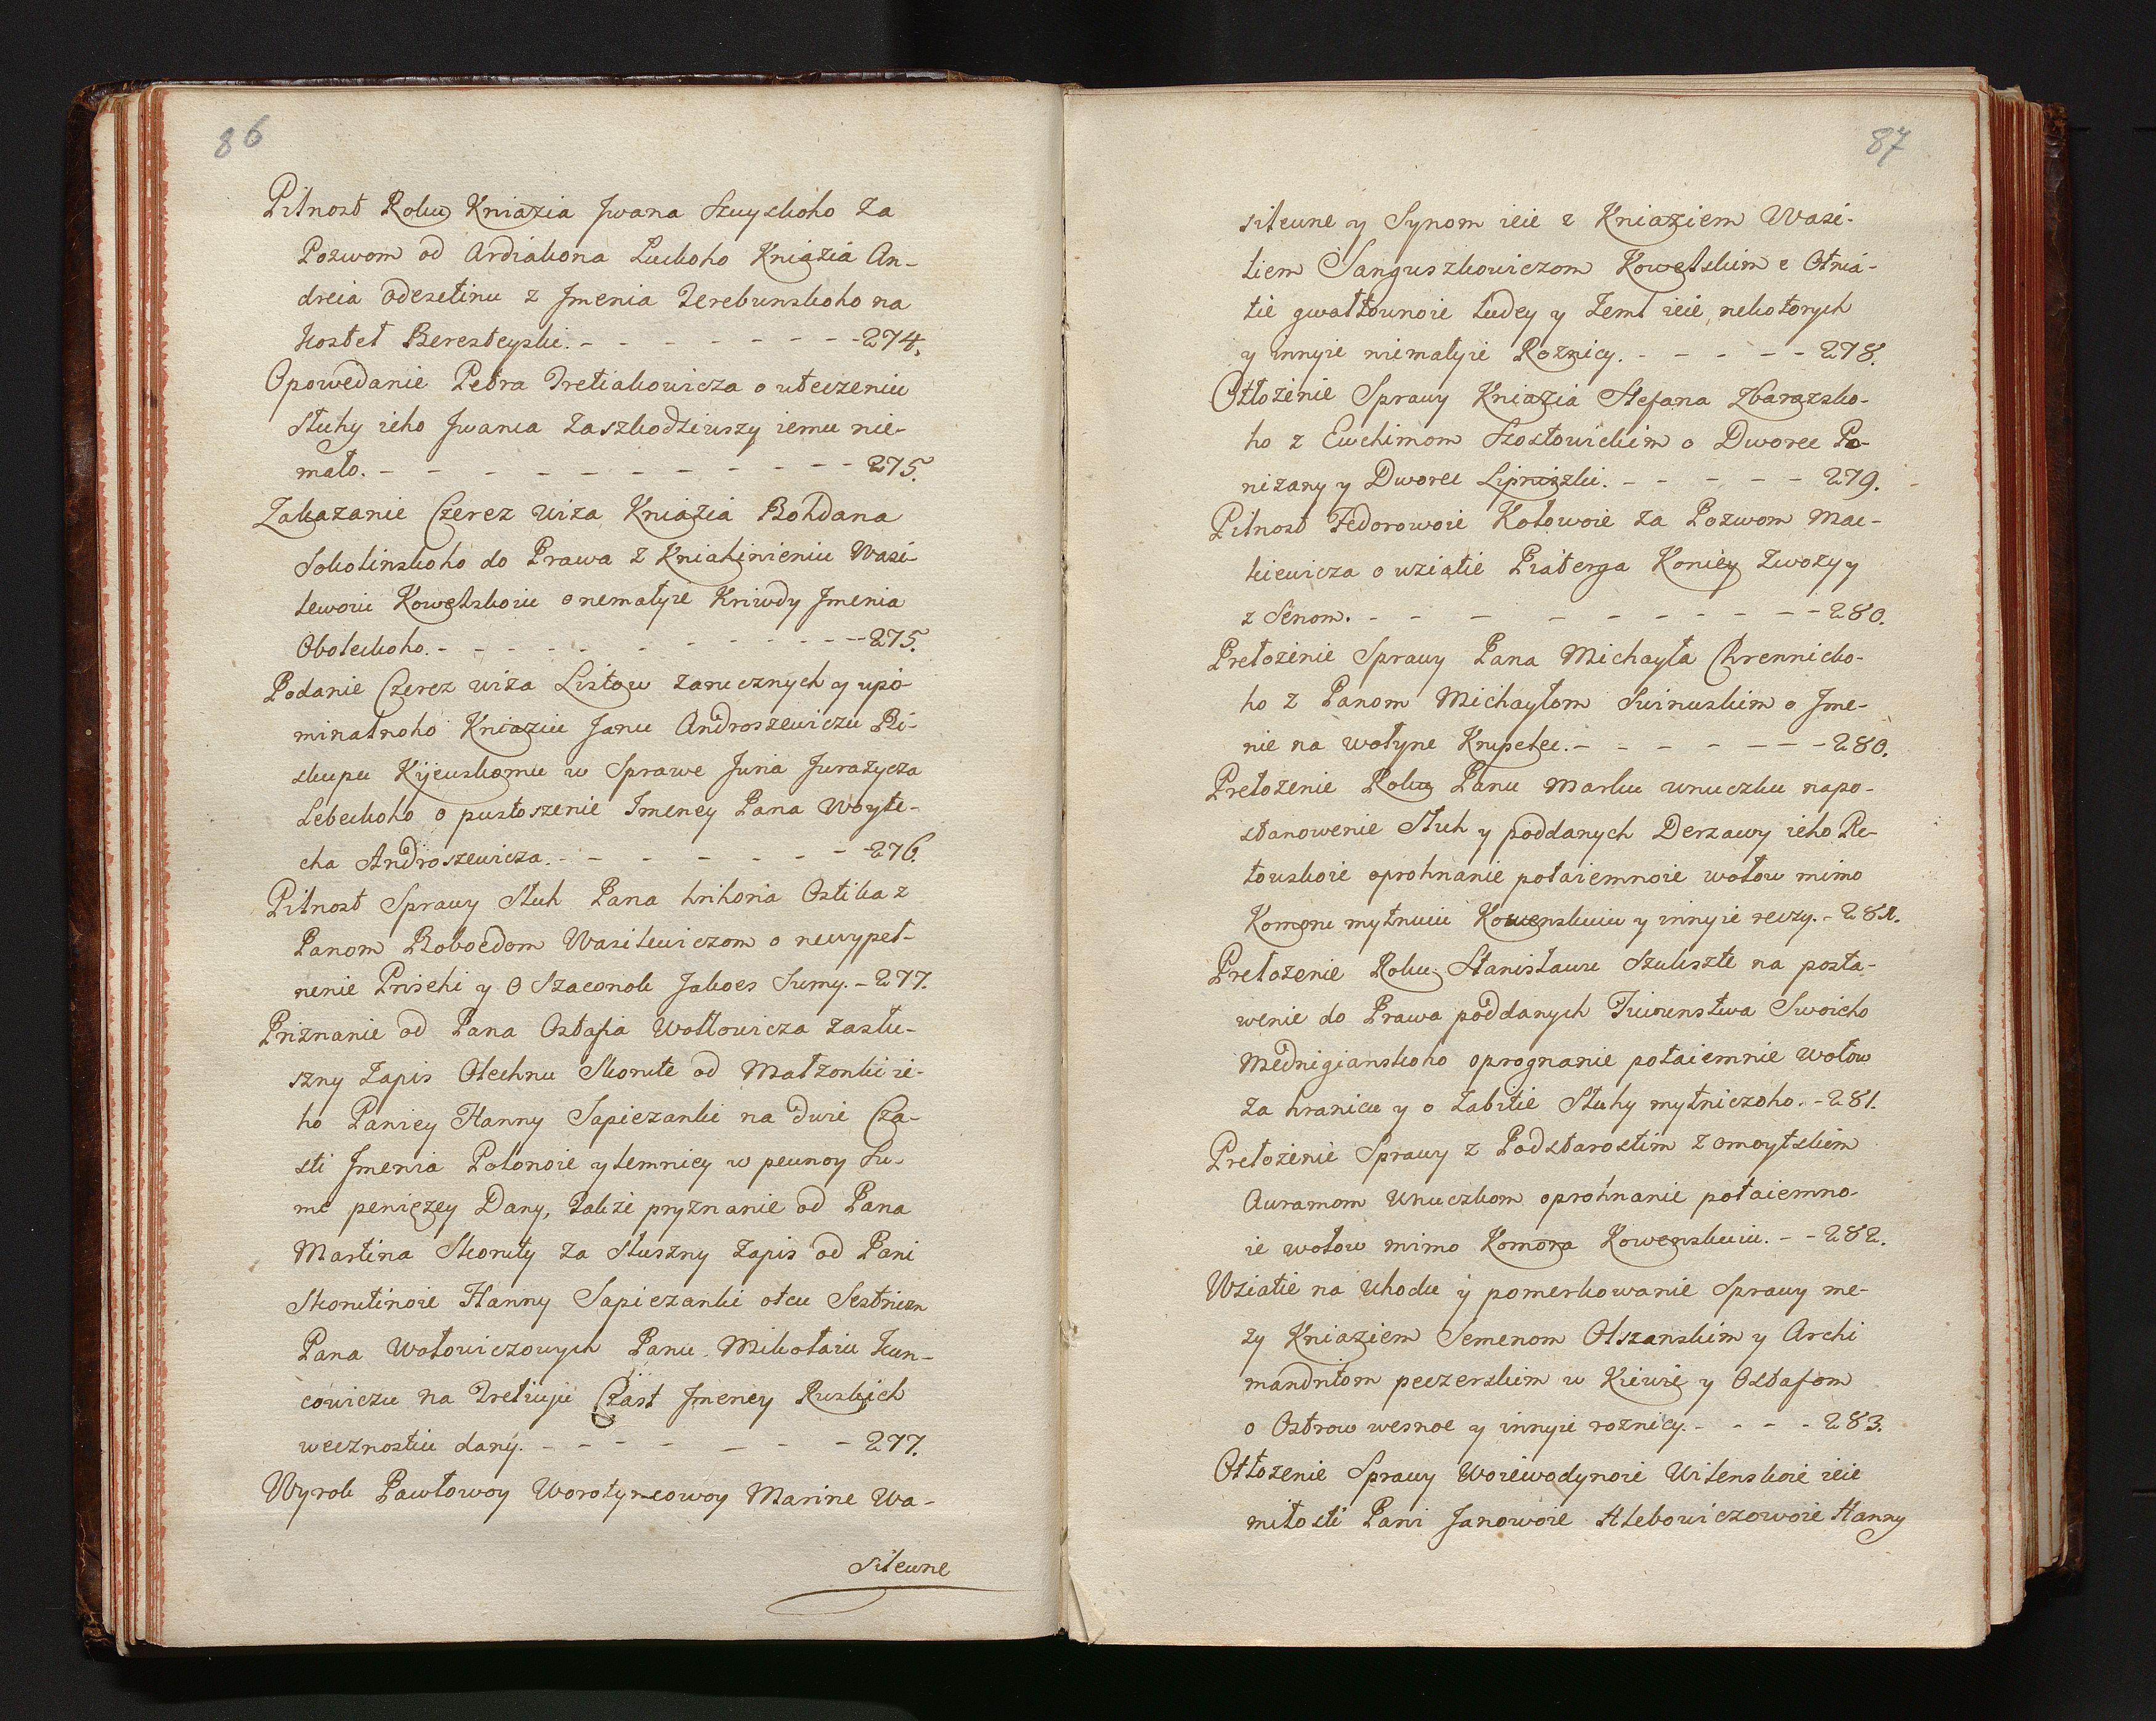 86
Pilnost Roku Kniazia Jwana Szuyskoho za
Pozwom od Ardiakona Luckoho Kniazia An-
dreia odesetinu z Jmenia Terebunskoho na
Kostel Beresteyski. - - - - - - - - - 274.
Opowedanie Petra Tretiakowicza o uteczeniu
Sluhy ieho Jwania zaszkodziwszy iemu nie-
malo. - - - - - - - - - - - 275.
Zakazanie Czerez wiza Kniazia Bohdana
Sokolinskoho do Prawa z Kniahinieniu Wasi-
lewoiu Kowelskoiu o nematyie Kriwdy Jmenia
Oboleckoho. - - - - - - - - - - 275.
Podanie Czerez wiza Listow zarucznych y upo-
minalnoho Kniaziu Janu Androszewiczu Bi-
skupu Kijeuskomu w Sprawe Juria Jurazycza
Lebeckoho o pustoszenie Jmeney Pana Woyte-
cha Androszewicza. - - - - - - - 276.
Pilnost Sprawy Sluh Pana hrihoria Ostika z
Panom Boboedom Wasilewiczom o newypel-
nenie Prisehi y O Szaconok Jakoes Sumy. - 277.
Priznanie od Pana Ostafia Wollowicza zaslu-
szny Zapis Olechnu Skorute od Malzonki ie-
ho Paniey Hanny Sapiezanki na dwie Cza-
sti Jmenia Polonoie y temnicy w pewnoy Su-
me peniezey Dany, Takze pryznanie od Pana
Martina Skoruty za Sluszny Zapis od Pani
Skorutinoie Hanny Sapiezanki otcu Sestricen
Pana Wolowiczowych Panu Mikolaiu Kun-
cowiczu na Tretiuju Czast Jmeney Ruskich
wecznostiu dany. - - - - - - - 277.
Wyrok Pawlowoy Worotyncowoy Marine Wa-
silewne
87
silewne y Synom ieie z Kniaziem Wasi-
liem Sanguszkowiczom Kowelskim o Otnia-
tie gwaltownoie ludey y Zeml ieie nekotorych
y innyie niemalyie Roznicy. - - - - - 278.
Otlozenie Sprawy Kniazia Stefana Zbarazsko-
ho z Ewchimom Szostowickim o Dworec Po-
nizany y Dworec Lipniszki. - - - - - 279.
Pilnost Fedorowoie Kotowoie za Pozwom Mac-
kiewicza o wziatie Piaterga Koniey Zwozy y
z Senom. - - - - - - - - - 280.
Prelozenie Sprawy Pana Michayla Chrennicko-
ho z Panom Michaylom Swinuskim o Jme-
nie na wolyne Krupelec. - - - - - - 280.
Prelozenie Roku Panu Marku wnuczku napo-
stanowenie Sluh y poddanych Derzawy ieho Re-
towskoie oprohnanie potaiemnoie wolow mimo
Komoru mytnuiu Kowenskuiu y innyie reczy. - 281.
Prelozenie Roku Stanislawu Szukszte na posta-
wenie do Prawa poddanych Tiwunstwa Swoieho
Mednigianskoho oprognanie potaiemnie wolow
za hranicu y o zabitie Sluhy mytniczoho. - 281.
Prelozenie Sprawy z Podstarostim Zomoytskim
Auramom Wnuczkom oprohnanie potaiemno-
ie wolow mimo Komora Kowenskuiu. - - 282.
Wziatie na Uhodu y pomerkowanie Sprawy me-
zy Kniaziem Semenom Olszanskim y Archi
mandritom peczerskim w Kiewie y Ostafom
o Ostrow wesnoe y innyie roznicy. - - - - 283.
Otlozenie Sprawy Woiewodynoie Wilenskoie ieie
milosti Pani Janowoie Hlebowiczowoie Hanny